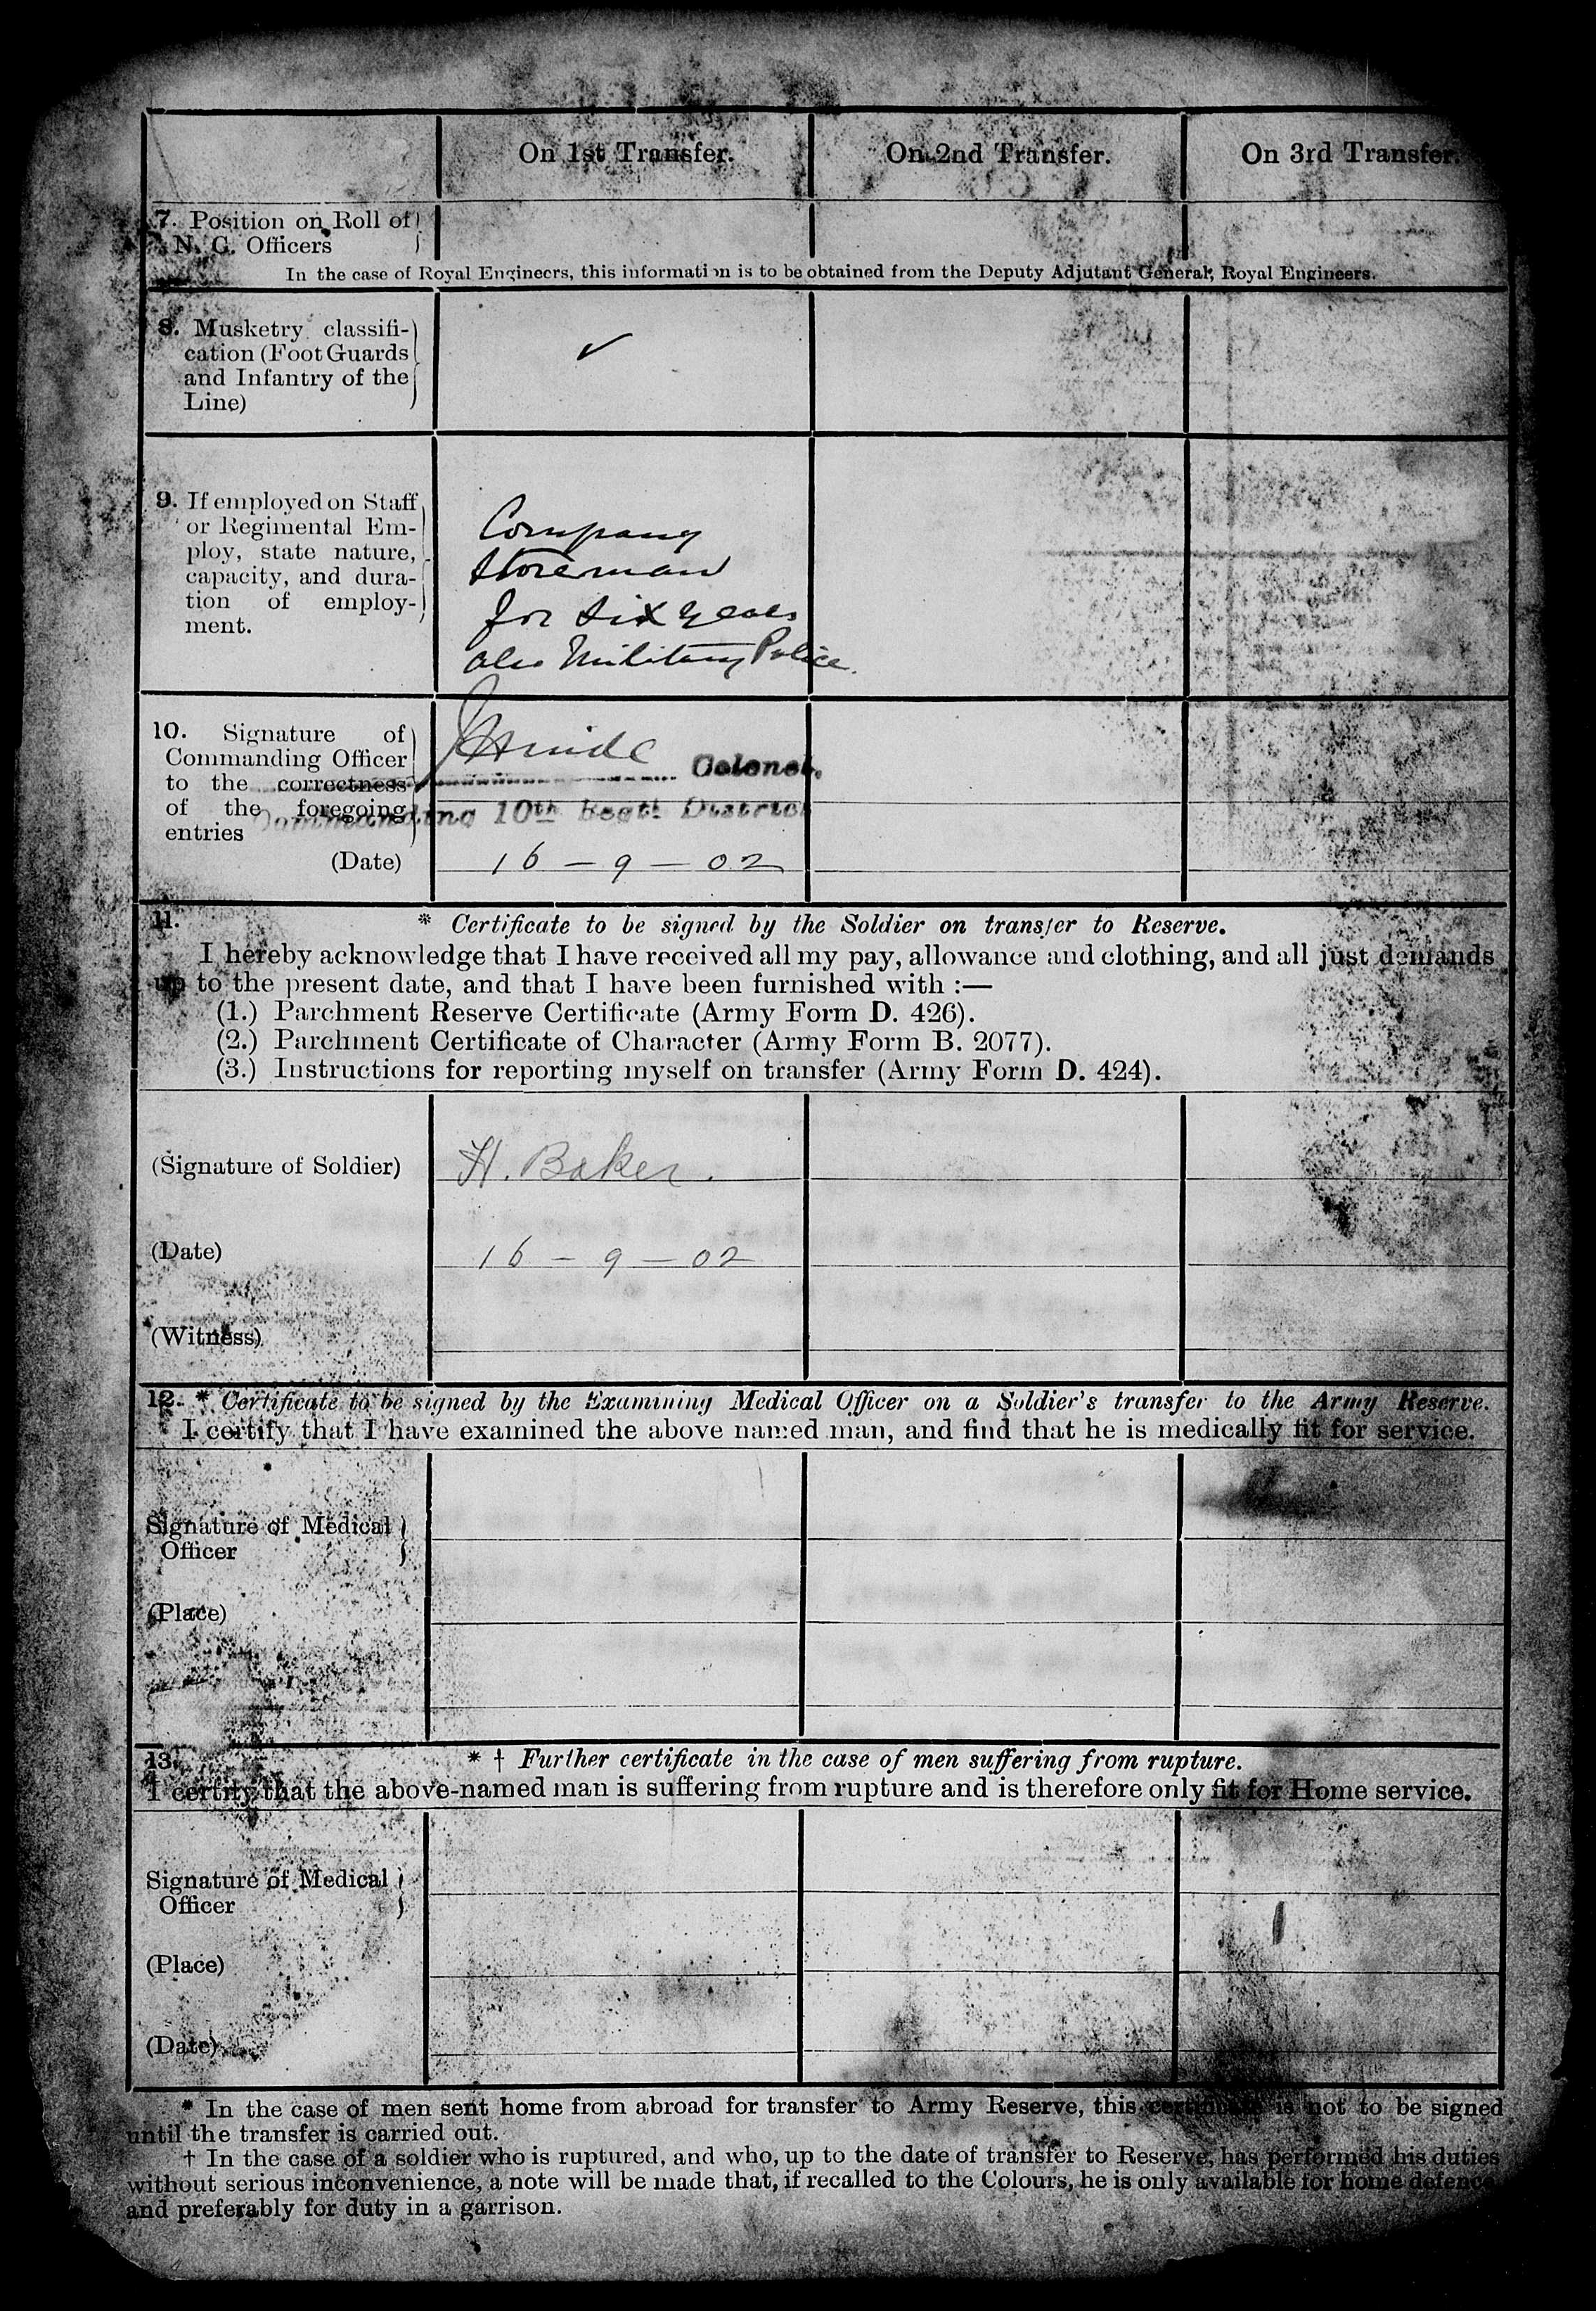 On 1st Transfer. On 2nd Transfer. On 3rd Transfer.
7. Position on Roll of
N. C. Officers
In the case of Royal Engineers, this information is to be obtained from the Deputy Adjutant General, Royal Engineers.
8. Musketry classifi-
cation (Foot Guards
and Infantry of the
Line)
✓
9. If employed on Staff
or Regimental Em-
ploy, state nature,
capacity, and dura-
tion of employ-
ment.
Company
Storeman
for six years
also Military Police.
10. Signature of
Commanding Officer
to the correctness
of the foregoing
entries
Colonel.
Commanding 10th Regtl District
(Date) 16 - 9 - 02
11. * Certificate to be signed by the Soldier on transfer to Reserve.
I hereby acknowledge that I have received all my pay, allowance and clothing, and all just demands
up to the present date, and that I have been furnished with :—
(1.) Parchment Reserve Certificate (Army Form D. 426).
(2.) Parchment Certificate of Character (Army Form B. 2077).
(3.) Instructions for reporting myself on transfer (Army Form D. 424).
(Signature of Soldier) H. Baker.
(Date) 16 - 9 - 02
(Witness)
12. * Certificate to be signed by the Examining Medical Officer on a Soldier's transfer to the Army Reserve.
I certify that I have examined the above named man, and find that he is medically fit for service.
Signature of Medical
Officer
(Place)
13. * † Further certificate in the case of men suffering from rupture.
I certify that the above-named man is suffering from rupture and is therefore only fit for Home service.
Signature of Medical
Officer
(Place)
(Date)
* In the case of men sent home from abroad for transfer to Army Reserve, this certificate is not to be signed
until the transfer is carried out.
† In the case of a soldier who is ruptured, and who, up to the date of transfer to Reserve, has performed his duties
without serious inconvenience, a note will be made that, if recalled to the Colours, he is only available for home defence
and preferably for duty in a garrison.